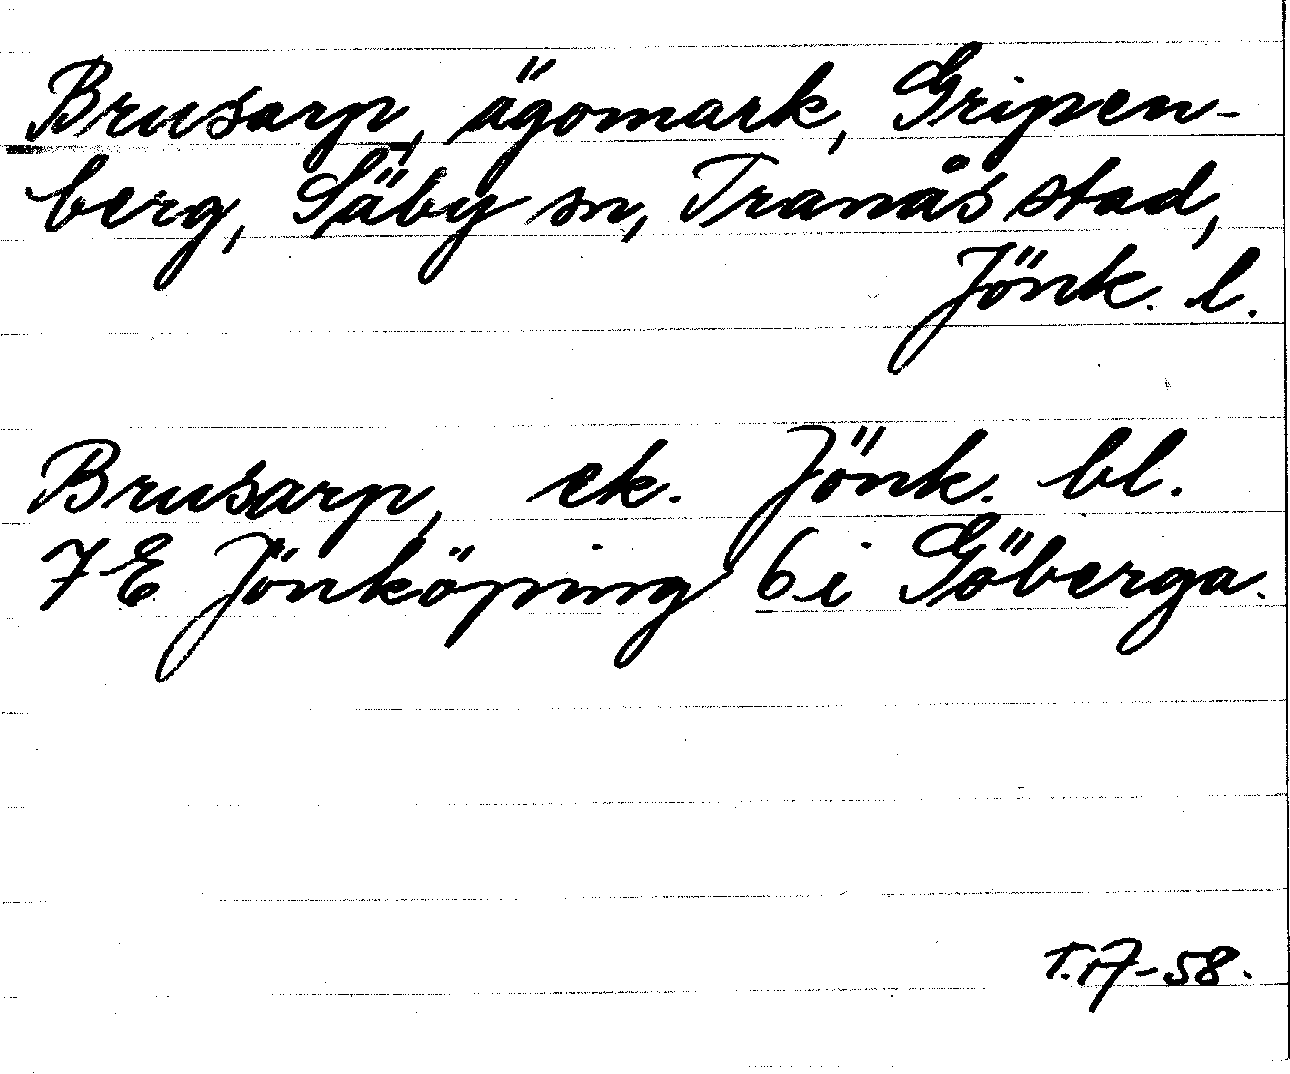 Brusarp, ägomark, Gripen-
berg, Säby sn, Tranås stad,
Jönk. l.
Brusarp, ek. Jönk. bl.
7E Jönköping 6i Göberga.
T.17-58.